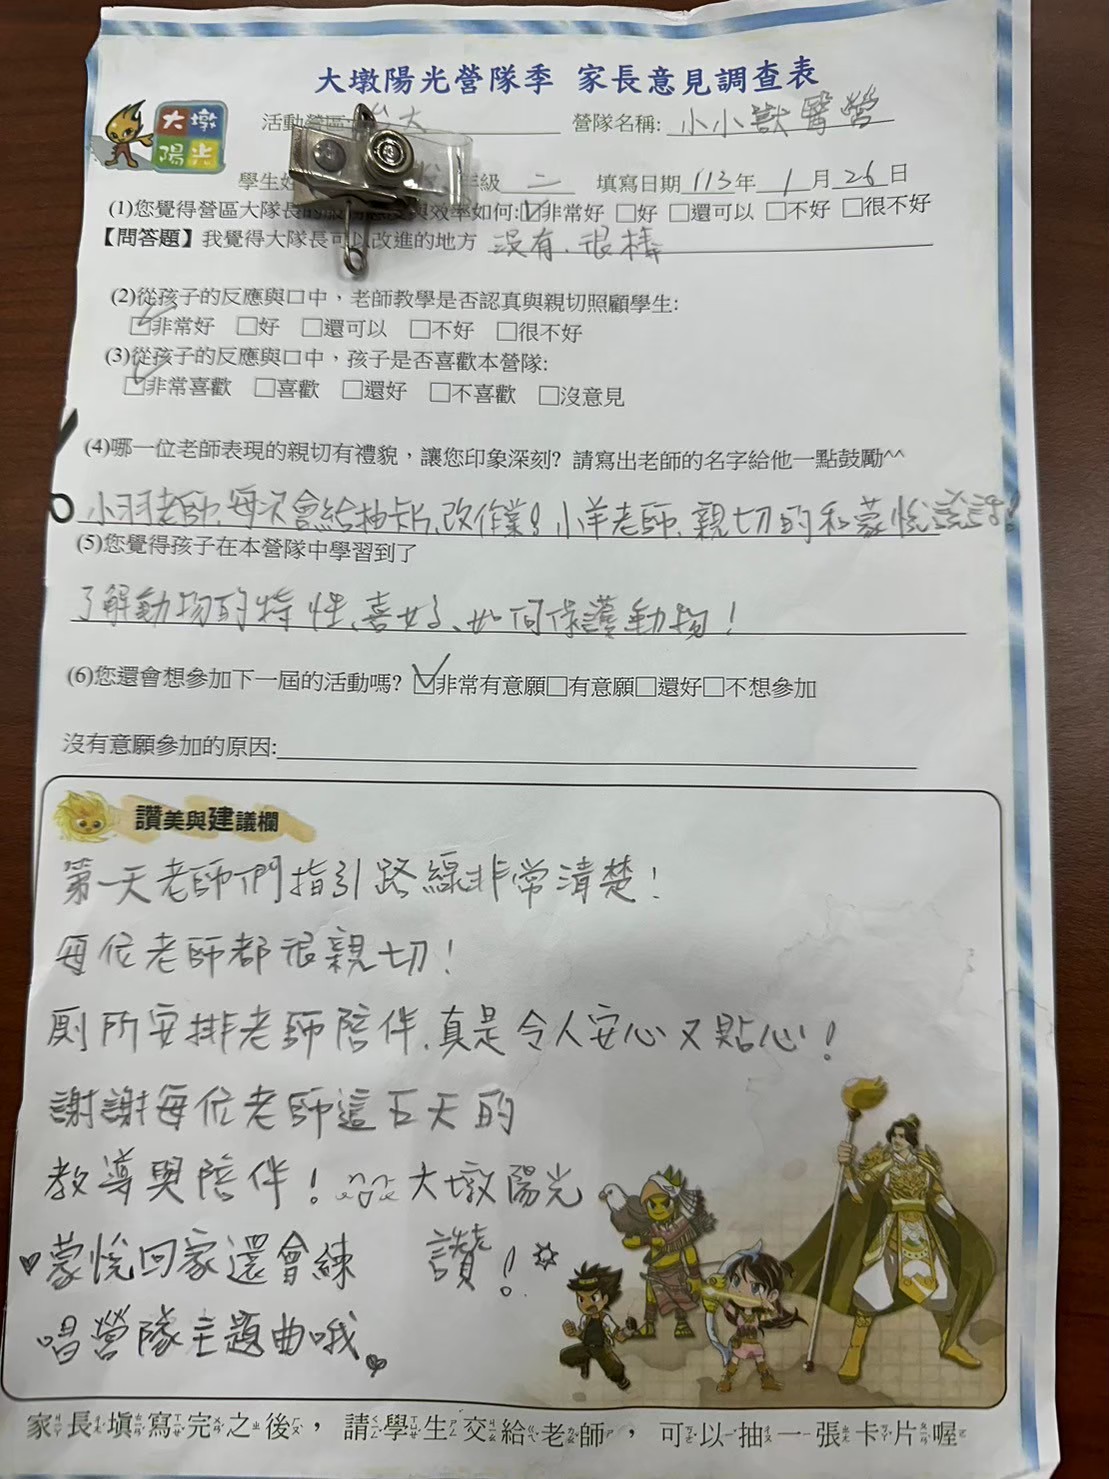 大墩陽光營隊季 家長意見調查表
大墩
陽光
活動營區 大 營隊名稱: 小小獸醫營
學生姓 年級 二 填寫日期 113 年 1 月 26 日
(1)您覺得營區大隊長的服 與效率如何:☑非常好 □好 □還可以 □不好 □很不好
【問答題】我覺得大隊長可以改進的地方 沒有.很棒
(2)從孩子的反應與口中，老師教學是否認真與親切照顧學生:
☑非常好 □好 □還可以 □不好 □很不好
(3)從孩子的反應與口中，孩子是否喜歡本營隊:
☑非常喜歡 □喜歡 □還好 □不喜歡 □沒意見
(4)哪一位老師表現的親切有禮貌，讓您印象深刻? 請寫出老師的名字給他一點鼓勵^^
小羽老師.每次會給抽卡片.改作業！小羊老師.親切的和蒙悅說話！
(5)您覺得孩子在本營隊中學習到了
了解動物的特性、喜好、如何保護動物！
(6)您還會想參加下一屆的活動嗎? ☑非常有意願□有意願□還好□不想參加
沒有意願參加的原因:
讚美與建議欄
第一天老師們指引路線非常清楚！
每位老師都很親切！
廁所安排老師陪伴.真是令人安心又貼心！
謝謝每位老師這五天的
教導與陪伴！ 大墩陽光
♥蒙悅回家還會練 讚！
唱營隊主題曲哦
家長填寫完之後，請學生交給老師，可以抽一張卡片喔